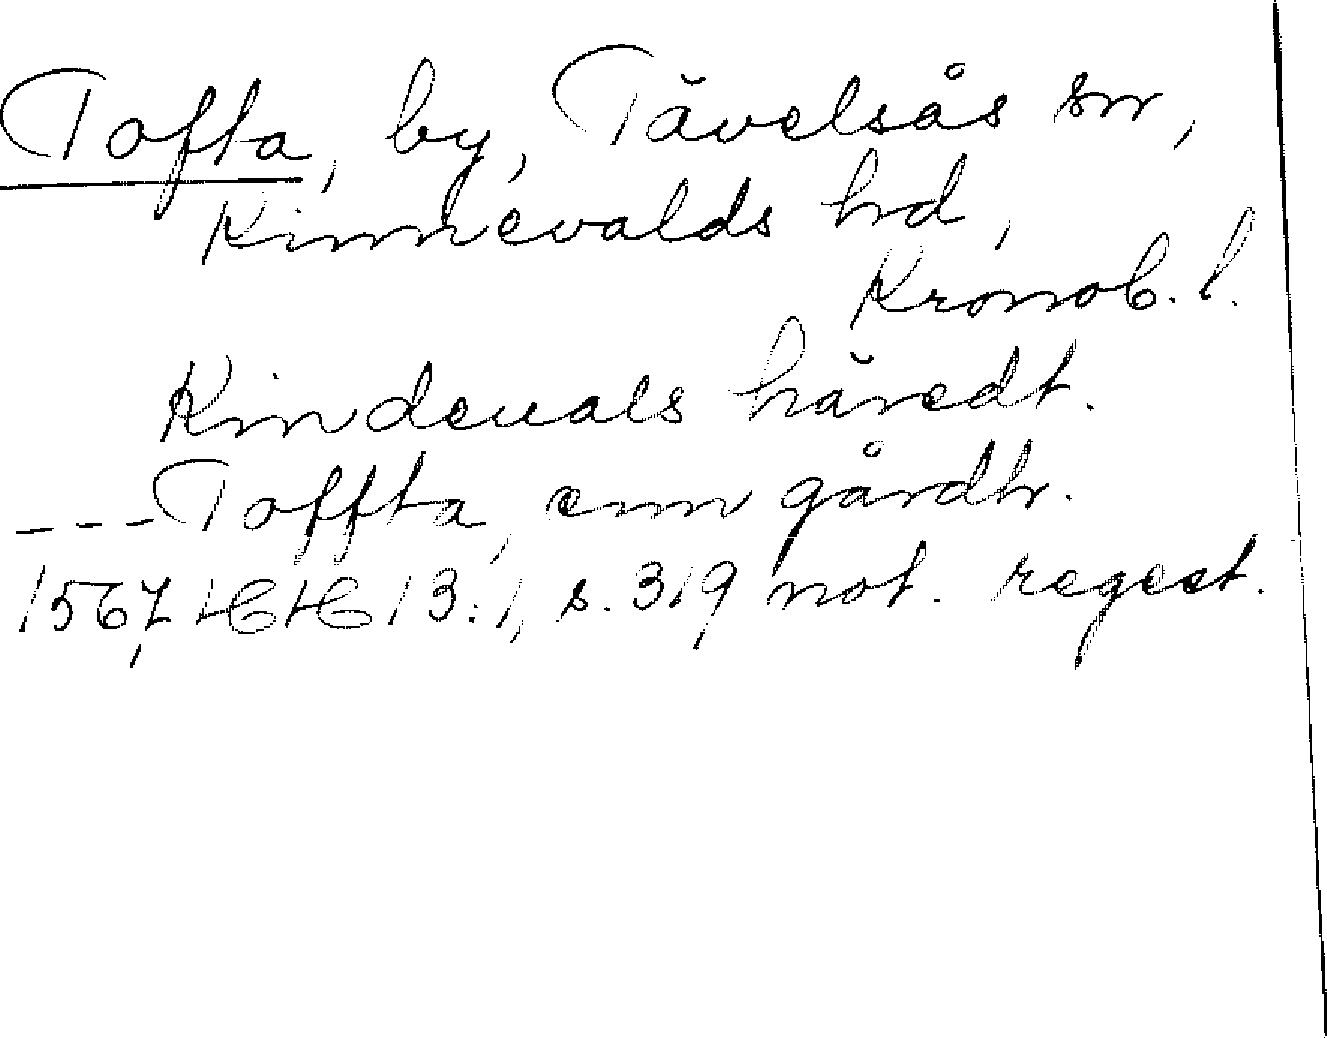 Tofta, by, Tävelsås sn,
Kinnevalds hd,
Kronob. l.
Kindeuals häredt.
---Toffta, enn gårdh.
1567, HH 13:1, s. 319 not. regest.